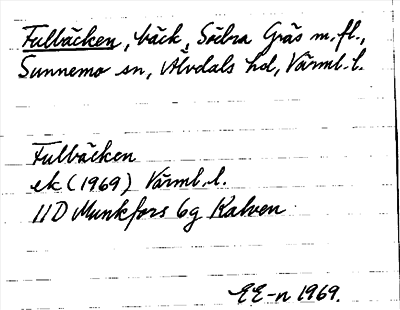 Fulbäcken, bäck, Södra Gräs m.fl.,
Sunnemo sn, Älvdals hd, Värml.l.
Fulbäcken
ek (1969) Värml.l.
11D Munkfors 6g Kalven
EE-n 1969.